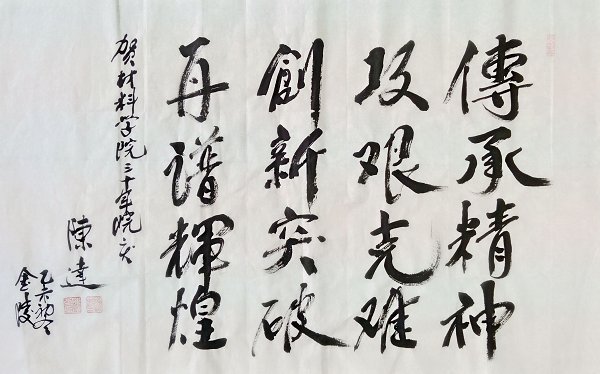 傳承精神
攻艰克难
創新突破
再谱輝煌
贺材料学院三十年院庆
陳達
金陵